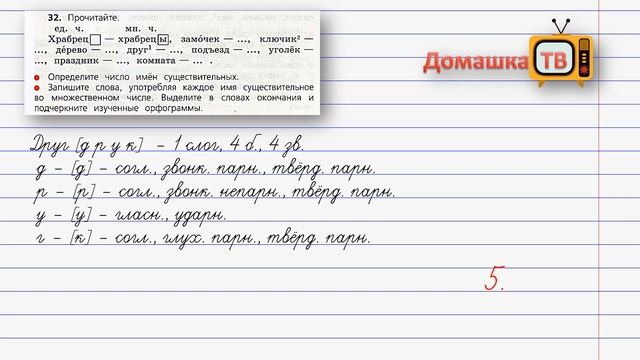 32. Прочитайте.
ед. ч. мн. ч.
Храбрец — храбрецы, замо́чек — ..., ключик² —
..., де́рево — ..., друг¹ — ..., подъезд — ..., уголёк —
..., праздник — ..., комната — ... .
Определите число имён существительных.
Запишите слова, употребляя каждое имя существительное
во множественном числе. Выделите в словах окончания и
подчеркните изученные орфограммы.
Домашка
ТВ
Друг [д р у к] – 1 слог, 4 б., 4 зв.
д – [д] – согл., звонк. парн., твёрд. парн.
р – [р] – согл., звонк. непарн., твёрд. парн.
у – [у] – гласн., ударн.
г – [к] – согл., глух. парн., твёрд. парн.
5.